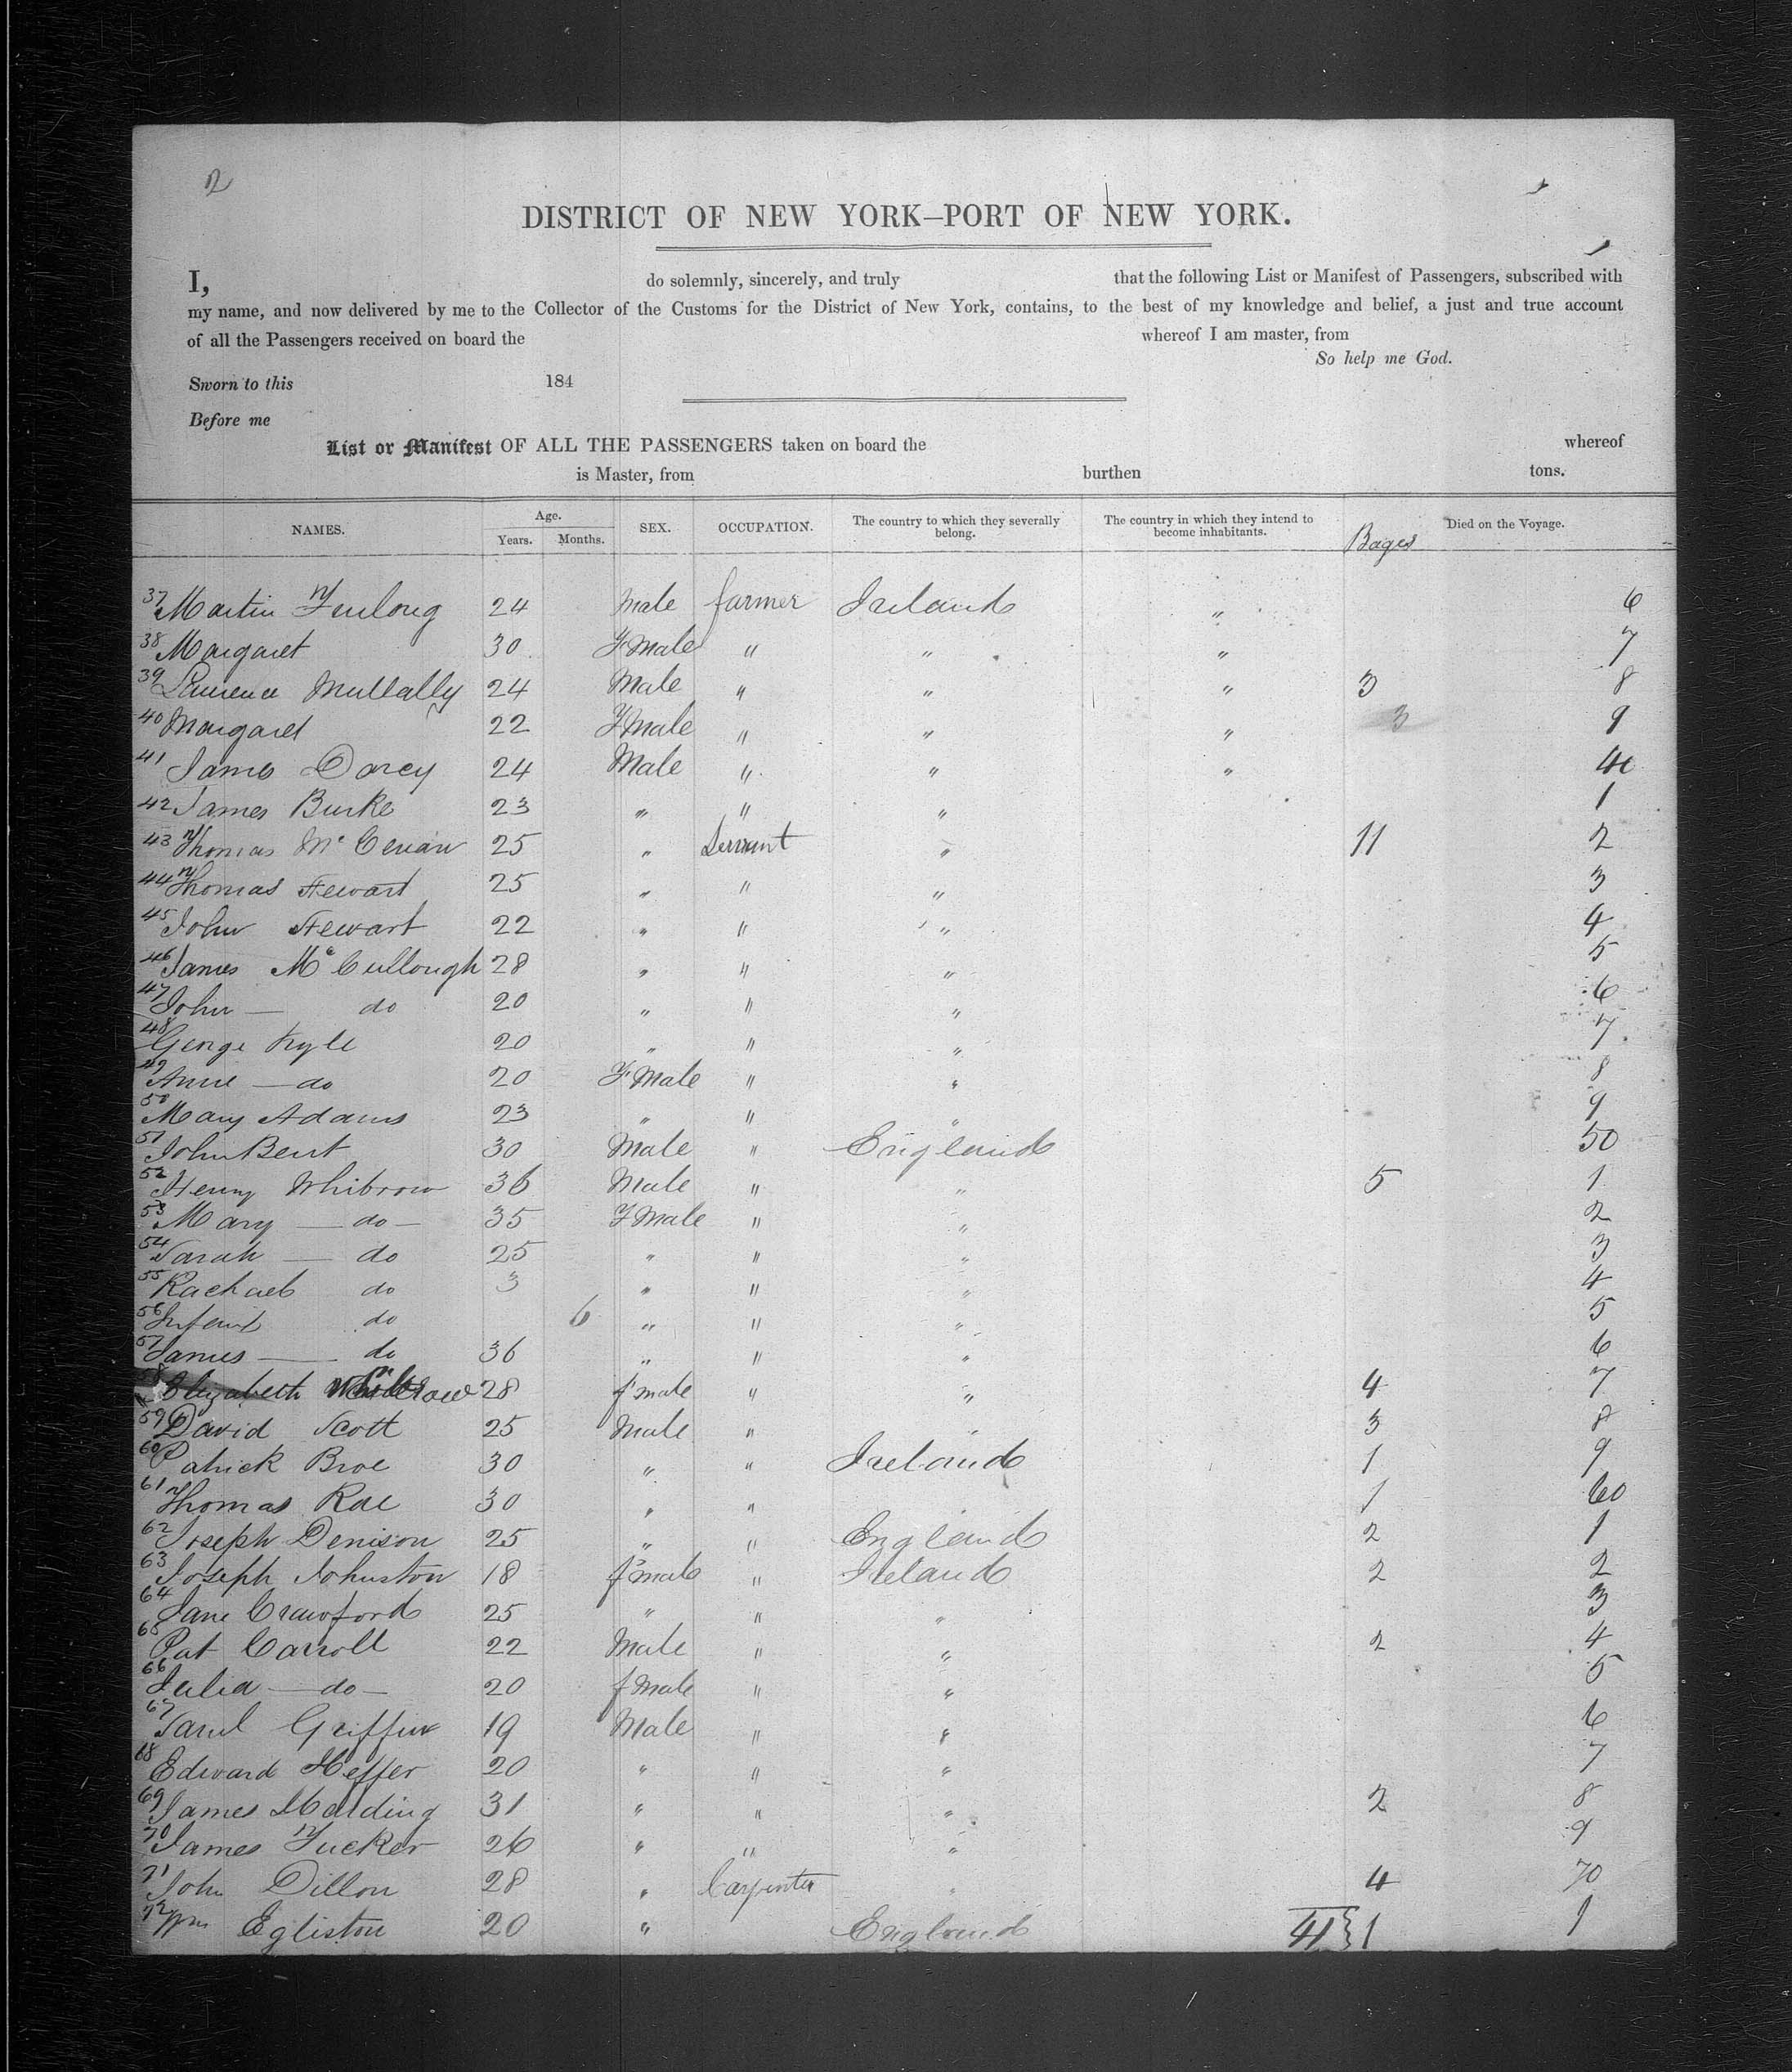 2
DISTRICT OF NEW YORK–PORT OF NEW YORK.
I, do solemnly, sincerely, and truly that the following List or Manifest of Passengers, subscribed with
my name, and now delivered by me to the Collector of the Customs for the District of New York, contains, to the best of my knowledge and belief, a just and true account
of all the Passengers received on board the whereof I am master, from
So help me God.
Sworn to this 184
Before me
List or Manifest OF ALL THE PASSENGERS taken on board the whereof
is Master, from burthen tons.
NAMES. Age. Years. Months. SEX. OCCUPATION. The country to which they severally belong. The country in which they intend to become inhabitants. Bages Died on the Voyage.
37 Martin Furlong 24 Male farmer Ireland " 6
38 Margaret 30 F Male " " " 7
39 Laurence Mullally 24 Male " " " 3 8
40 Margaret 22 F Male " " " 3 9
41 James Darcy 24 Male " " " 40
42 James Burke 23 " " " 1
43 Thomas Mc 25 " Servant " 11 2
44 Thomas Stewart 25 " " " 3
45 John Stewart 22 " " " 4
46 James McCullough 28 " " " 5
47 John — do 20 " " " 6
48 George Kyle 20 " " " 7
49 Anne — do 20 F Male " " 8
50 Mary Adams 23 " " " 9
51 John Bent 30 Male " England 50
52 Henry Whibrow 36 Male " " 5 1
53 Mary — do — 35 F Male " " 2
54 Sarah — do 25 " " " 3
55 Rachael do 3 " " " 4
56 Infant do 6 " " " 5
57 James — do 36 " " " 6
58 Elizabeth Whibrow 28 f male " " 4 7
59 David Scott 25 Male " 3 8
60 Patrick Broe 30 " " Ireland 1 9
61 Thomas Rae 30 " " 1 60
62 Joseph Denison 25 " " England 2 1
63 Joseph Johnston 18 f male " Ireland 2 2
64 Jane Crawford 25 " " " 3
65 Pat Carroll 22 Male " " 2 4
66 Julia — do — 20 f Male " " 5
67 Saml Griffin 19 Male " " 6
68 Edward Heffer 20 " " " 7
69 James Harding 31 " " " 2 8
70 James Tucker 26 " " " 9
71 John Dillon 28 " Carpenter " 4 70
72 Wm Egliston 20 " England 41 } 1 1